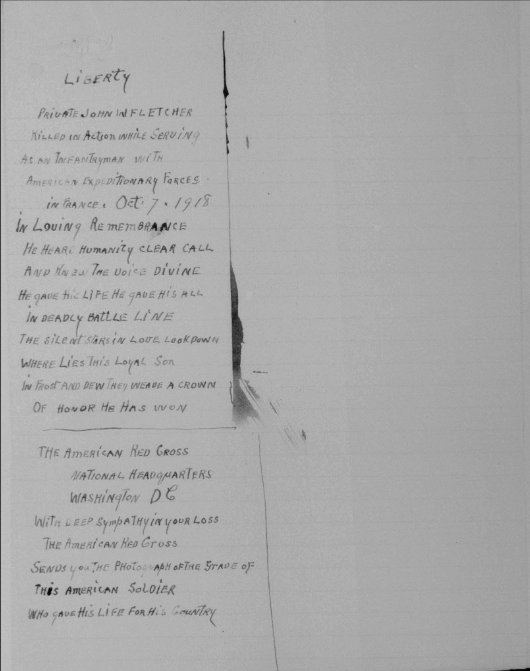 LIBERTY
PRIVATE JOHN W FLETCHER
KILLED IN ACTION WHILE SERVING
AS AN INFANTRYMAN WITH
AMERICAN EXPEDITIONARY FORCES
IN FRANCE. OCT. 7. 1918
IN LOVING REMEMBRANCE
HE HEARE HUMANITY CLEAR CALL
AND KNEW THE VOICE DIVINE
HE GAVE HIS LIFE HE GAVE HIS ALL
IN DEADLY BATLLE LINE
THE SILENT STARS IN LOVE LOOK DOWN
WHERE LIES THIS LOYAL SON
IN FROST AND DEW THEY WEAVE A CROWN
OF HONOR HE HAS WON
THE AMERICAN RED CROSS
NATIONAL HEADQUARTERS
WASHINGTON DC
WITH DEEP SYMPATHY IN YOUR LOSS
THE AMERICAN RED CROSS
SENDS YOU THE PHOTOGRAPH OF THE GRAVE OF
THIS AMERICAN SOLDIER
WHO GAVE HIS LIFE FOR HIS COUNTRY